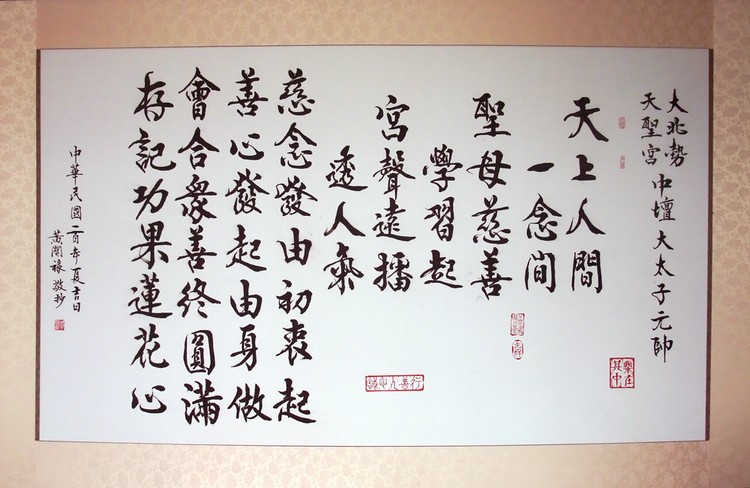 大北勢
天聖宮
中壇大太子元帥
天上人間
一念間
聖母慈善
學習起
宮聲遠播
透人氣
慈念發由初衷起
善心發起由身做
會合眾善終圓滿
存記功果蓮花心
中華民國一百年夏吉日
敬抄
樂在
其中